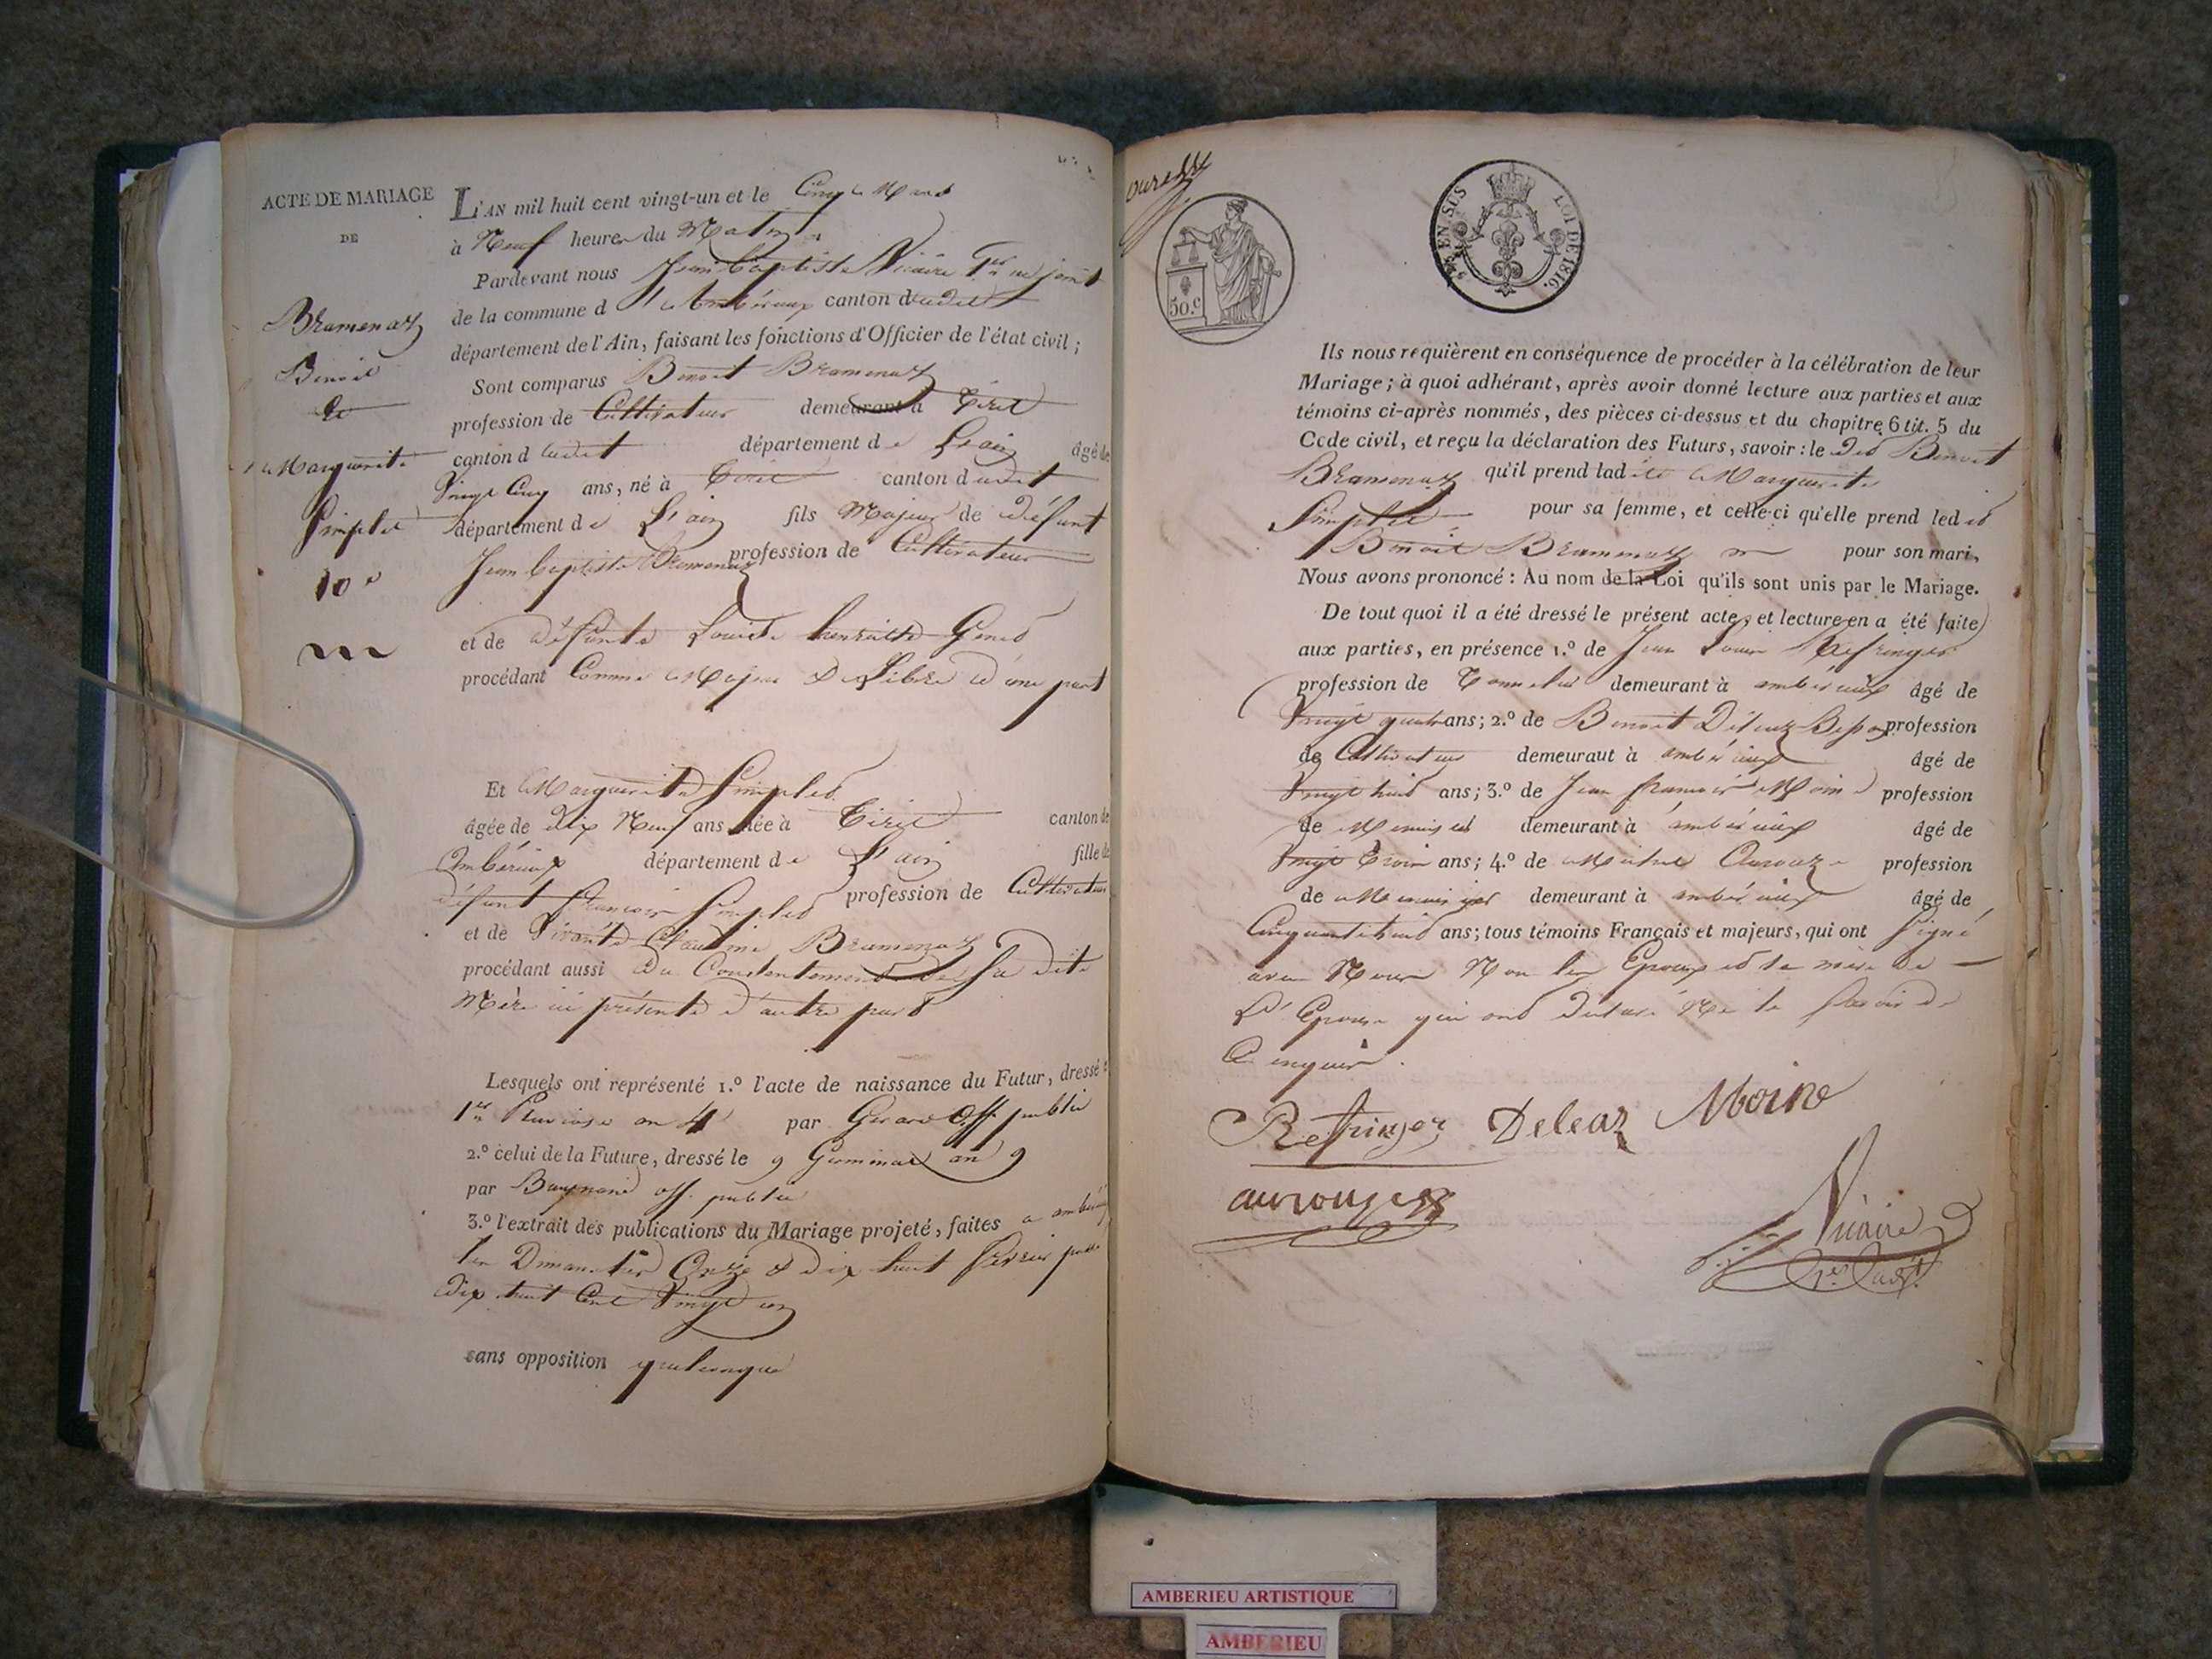 ACTE DE MARIAGE
DE
Bramenaz
Benoit
et
Marguerite
Simplet
10e
L'AN mil huit cent vingt-un et le Cinq Mars
à Neuf heures du Matin
Pardevant nous Jean Baptiste Vicaire 1er adjoint
de la commune d'Ambérieux canton dudit
département de l'Ain, faisant les fonctions d'Officier de l'état civil ;
Sont comparus Benoit Bramenaz
profession de Cultivateur demeurant à Tiret
canton dudit département de L'ain âgé de
Vingt Cinq ans, né à Tiret canton dudit
département de L'ain fils Majeur de défunt
Jean baptiste Bramenaz profession de Cultivateur
et de défunte Louise
procédant Comme Majeur & Libre d'une part
Et Marguerite Simplet
âgée de dix Neuf ans née à Tiret canton de
Ambérieux département de L'ain fille de
défunt François Simplet profession de Cultivateur
et de Vivante Claudine Bramenaz
procédant aussi du Consentement de sa dite
Mère ici présente d'autre part
Lesquels ont représenté 1.º l'acte de naissance du Futur, dressé
1er Pluviose an 4 par Gerard off. public
2.º celui de la Future, dressé le 9 Germinal an 9
par off. public
3.º l'extrait des publications du Mariage projeté, faites a
les Dimanches Onze & dix huit février
dix huit Cent Vingt un
sans opposition quelconque
50.C
EN SUS
LOI DE 1816.
Ils nous requièrent en conséquence de procéder à la célébration de leur
Mariage ; à quoi adhérant, après avoir donné lecture aux parties et aux
témoins ci-après nommés, des pièces ci-dessus et du chapitre 6 tit. 5 du
Code civil, et reçu la déclaration des Futurs, savoir : le dit Benoit
Bramenaz qu'il prend ladite Marguerite
Simplet pour sa femme, et celle-ci qu'elle prend ledit
Benoit Bramenaz pour son mari,
Nous avons prononcé : Au nom de la Loi qu'ils sont unis par le Mariage.
De tout quoi il a été dressé le présent acte, et lecture en a été faite
aux parties, en présence 1.º de Jean Louis Refringer
profession de Tonnelier demeurant à ambérieux âgé de
Vingt quatre ans ; 2.º de Benoit profession
de Cultivateur demeuraut à ambérieux âgé de
Vingt huit ans ; 3.º de Jean françois Moine profession
de Menuisier demeurant à ambérieux âgé de
Vingt trois ans ; 4.º de profession
de Menuisier demeurant à ambérieux âgé de
Cinquante huit ans ; tous témoins Français et majeurs, qui ont signé
avec Nous Non les Epoux et la mère de
L'Epouse qui ont déclaré Ne le savoir de
Ce enquis.
Refringer Deleaz Moine
Vicaire
AMBERIEU ARTISTIQUE
AMBERIEU